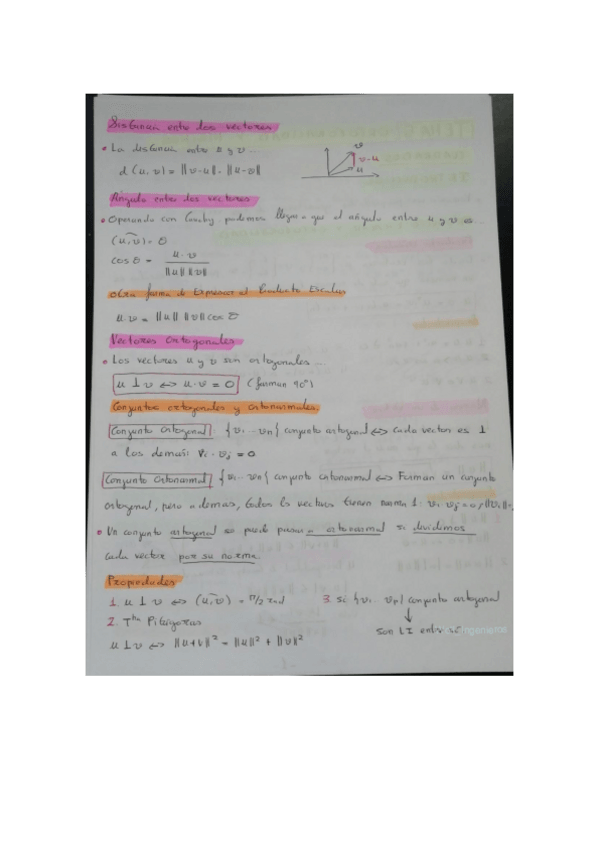 Distancia entre dos vectores
• La distancia entre u y v ...
d(u,v) = ||v-u|| = ||u-v||
v
v-u
u
Ángulo entre dos vectores
• Operando con Cauchy podemos llegar a que el ángulo entre u y v es ...
(u,v) = θ
cos θ = u·v / ||u|| ||v||
Otra forma de Expresar el Producto Escalar
u·v = ||u|| ||v|| cos θ
Vectores Ortogonales
• Los vectores u y v son ortogonales ...
u ⊥ v ⇔ u·v = 0 (forman 90°)
Conjuntos ortogonales y ortonormales.
Conjunto Ortogonal: {v₁...vn} conjunto ortogonal ⇔ Cada vector es ⊥
a los demás: vi·vj = 0
Conjunto Ortonormal {v₁...vn} conjunto ortonormal ⇔ Forman un conjunto
ortogonal, pero además, todos los vectores tienen norma 1. vi·vj = 0, ||vi||
• Un conjunto ortogonal se puede pasar a ortonormal si dividimos
cada vector por su norma.
Propiedades
1. u ⊥ v ⇔ (u,v) = π/2 rad
3. Si {v₁...vp} conjunto ortogonal
↓
son LI entre sí
2. Tma Pitágoras
u ⊥ v ⇔ ||u+v||² = ||u||² + ||v||²